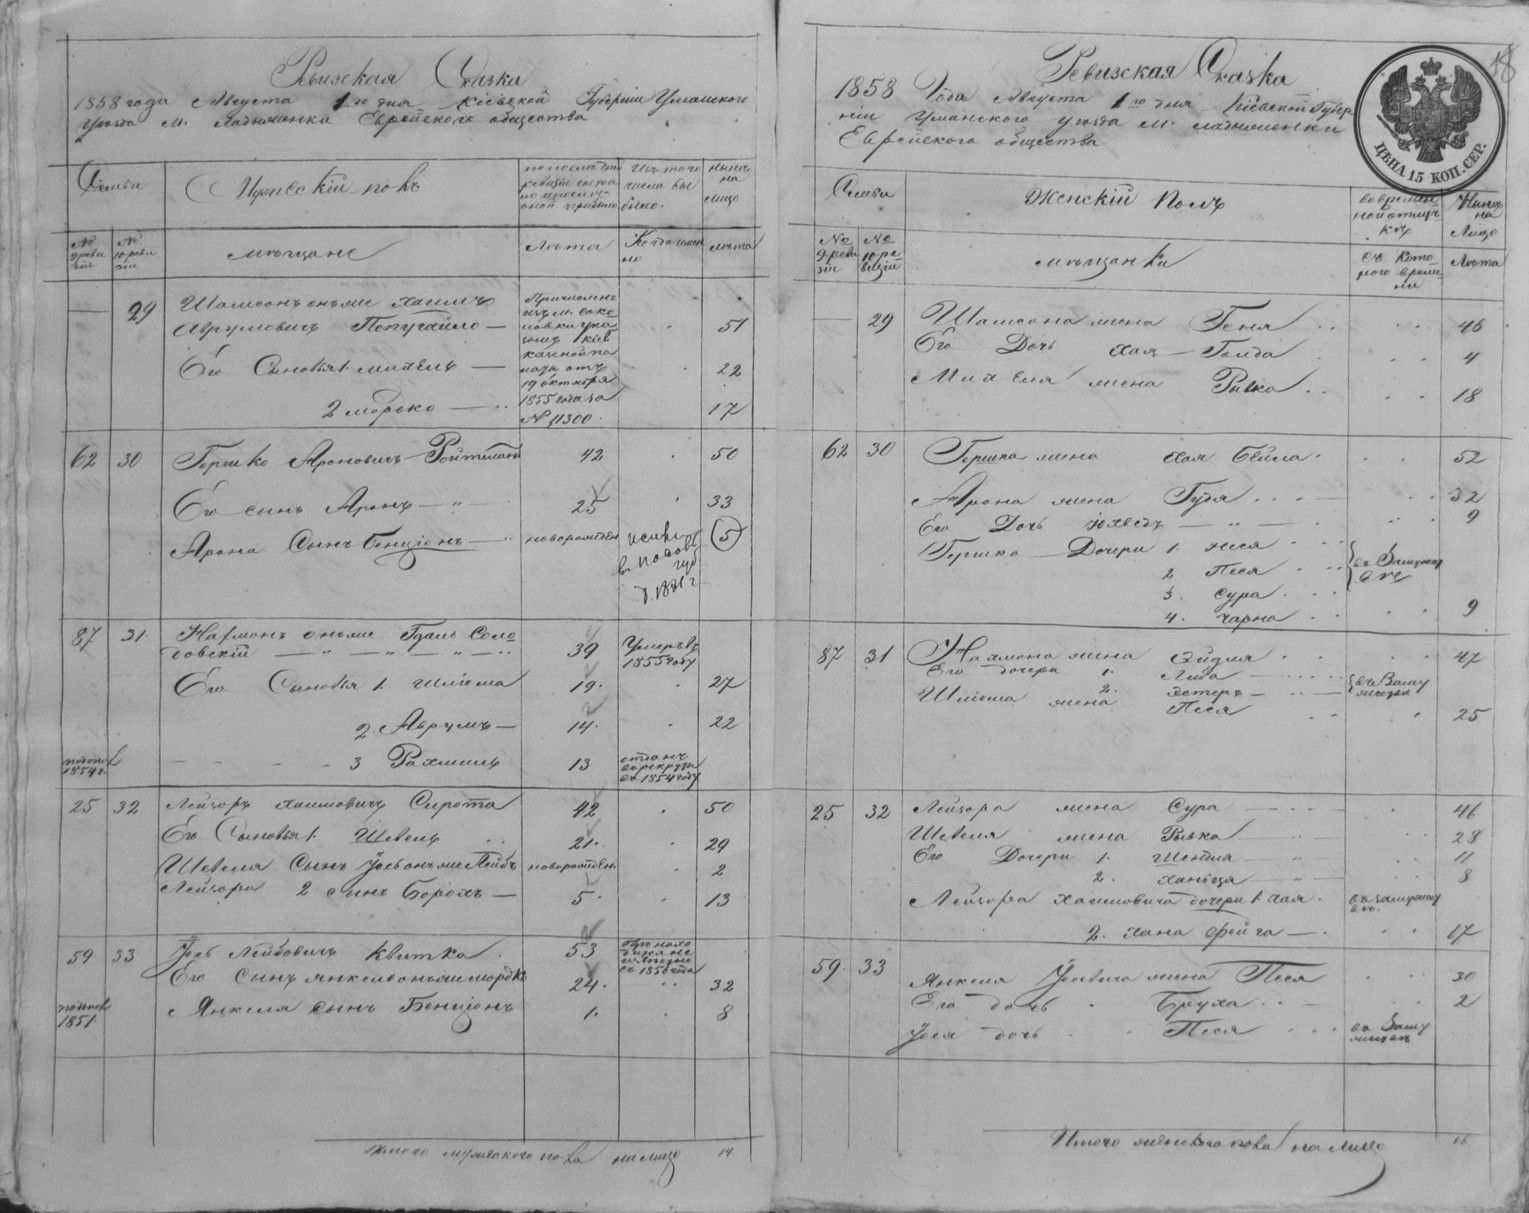 Ревизская Сказка
1858 года Августа 1го дня Кіевской Губерніи Уманского
уезда м. Ладыженка Еврейского общества
Семьи
Мужескій полъ
Из того числа выбыло.
Ныне на лицо
№ 9 ревизіи
№ 10 ревизіи
мещане
Лета
Когда именно
лета
29
Шамсонъ онъ же Хаимъ
Аврумовичъ Попугайло
Причисленъ
изъ м. Соко
ловки ука
зомъ Кіев
казеной па
латы отъ
19 октября
1855 года за
№ 11300
51
Его Сыновья 1. Михель
22
2 Морько
17
62 30
Гершко Ароновичъ Ройтманъ
42
50
Его сынъ Аронъ
25
33
Арона Сынъ Бенціонъ
новорожден
5
87 31
Нахманъ онъ же Гдаль Соло
довскій
39
Умеръ въ
1855 году
Его Сыновья 1. Шліома
19
27
2 Аврумъ
14
22
1854 г.
3 Рахмиль
13
отданъ
въ рекруты
въ 1854 году
25 32
Лейзоръ Хаимовичъ Сирота
42
50
Его Сыновья 1. Шевель
21
29
Шевеля Сынъ Іось онъ же Лейбъ
новорожден
2
Лейзора 2 сынъ Борохъ
5
13
59 33
Іось Лейбовичъ Квитка
53
съ 1850 года
Его Сынъ Янкель онъ же Мордко
24
32
1851
Янкеля сынъ Бенціонъ
1
8
Итого мужеского пола на лицо 14
18
Ревизская Сказка
1858 Года Августа 1го дня Кіевской Губер
ніи Уманского уезда м. Ладыженки
Еврейского общества
ЦѢНА 15 КОП. СЕР.
Семьи
Женскій Полъ
во времен
ной отлуч
ке
Ныне на Лицо
№ 9 реви зіи
№ 10 ре визіи
мещанки
съ кото
рого време
ни
Лета
29
Шамсона жена Геня
46
Его Дочь Хая Голда
4
Михеля жена Ривка
18
62 30
Гершка жена Хая Бейла
52
Арона жена Гудя
32
Его Дочь Юхведъ
9
Гершка Дочери 1. Нися
2 Песя
въ Замужест
ве
3. Сура
4. Чарна
9
87 31
Нахмана жена Эйдля
47
Его дочери 1. Либа
2. Эстеръ
въ Заму
жестве
Шліома жена Песя
25
25 32
Лейзора жена Сура
46
Шевеля жена Рывка
28
Его Дочери 1. Шейндля
11
2. Ханьця
8
Лейзора Хаимовича дочери 1. Хая
въ замужест
ве
2. Хана Фейга
17
59 33
Янкеля Іосевича жена Песя
30
Его дочь Бруха
2
Іося дочь Песя
въ Заму
жестве
Итого женского пола на лицо 16